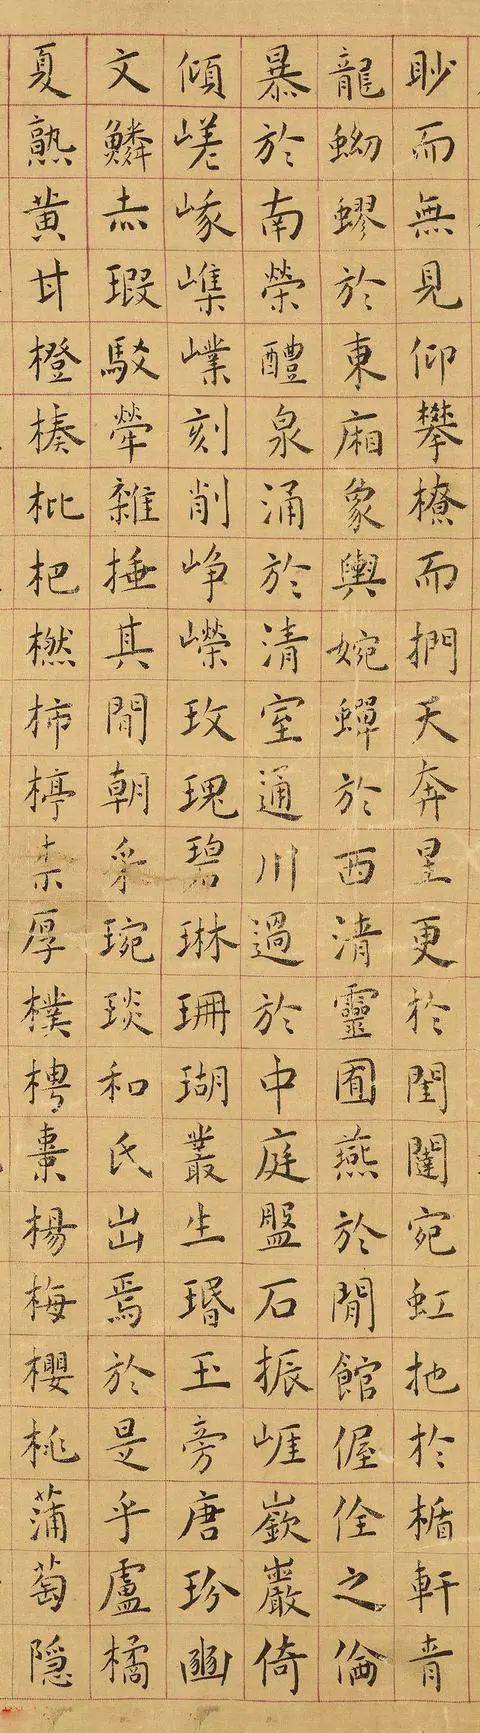 眇而無見仰攀橑而捫天奔星更於閨闥宛虹扡於楯軒青
龍蚴蟉於東廂象輿婉蟬於西清靈圄燕於閒館偓佺之倫
暴於南榮醴泉涌於清室通川過於中庭盤石振崖嶔巖倚
傾嵯峨嶫刻削崢嶸玫瑰碧琳珊瑚叢生瑉玉旁唐玢豳
文鱗赤瑕駁犖雜捶其間朝采琬琰和氏出焉於是乎盧橘
夏熟黃甘橙楱枇杷橪柿楟柰厚樸梬棗楊梅櫻桃蒲萄隱